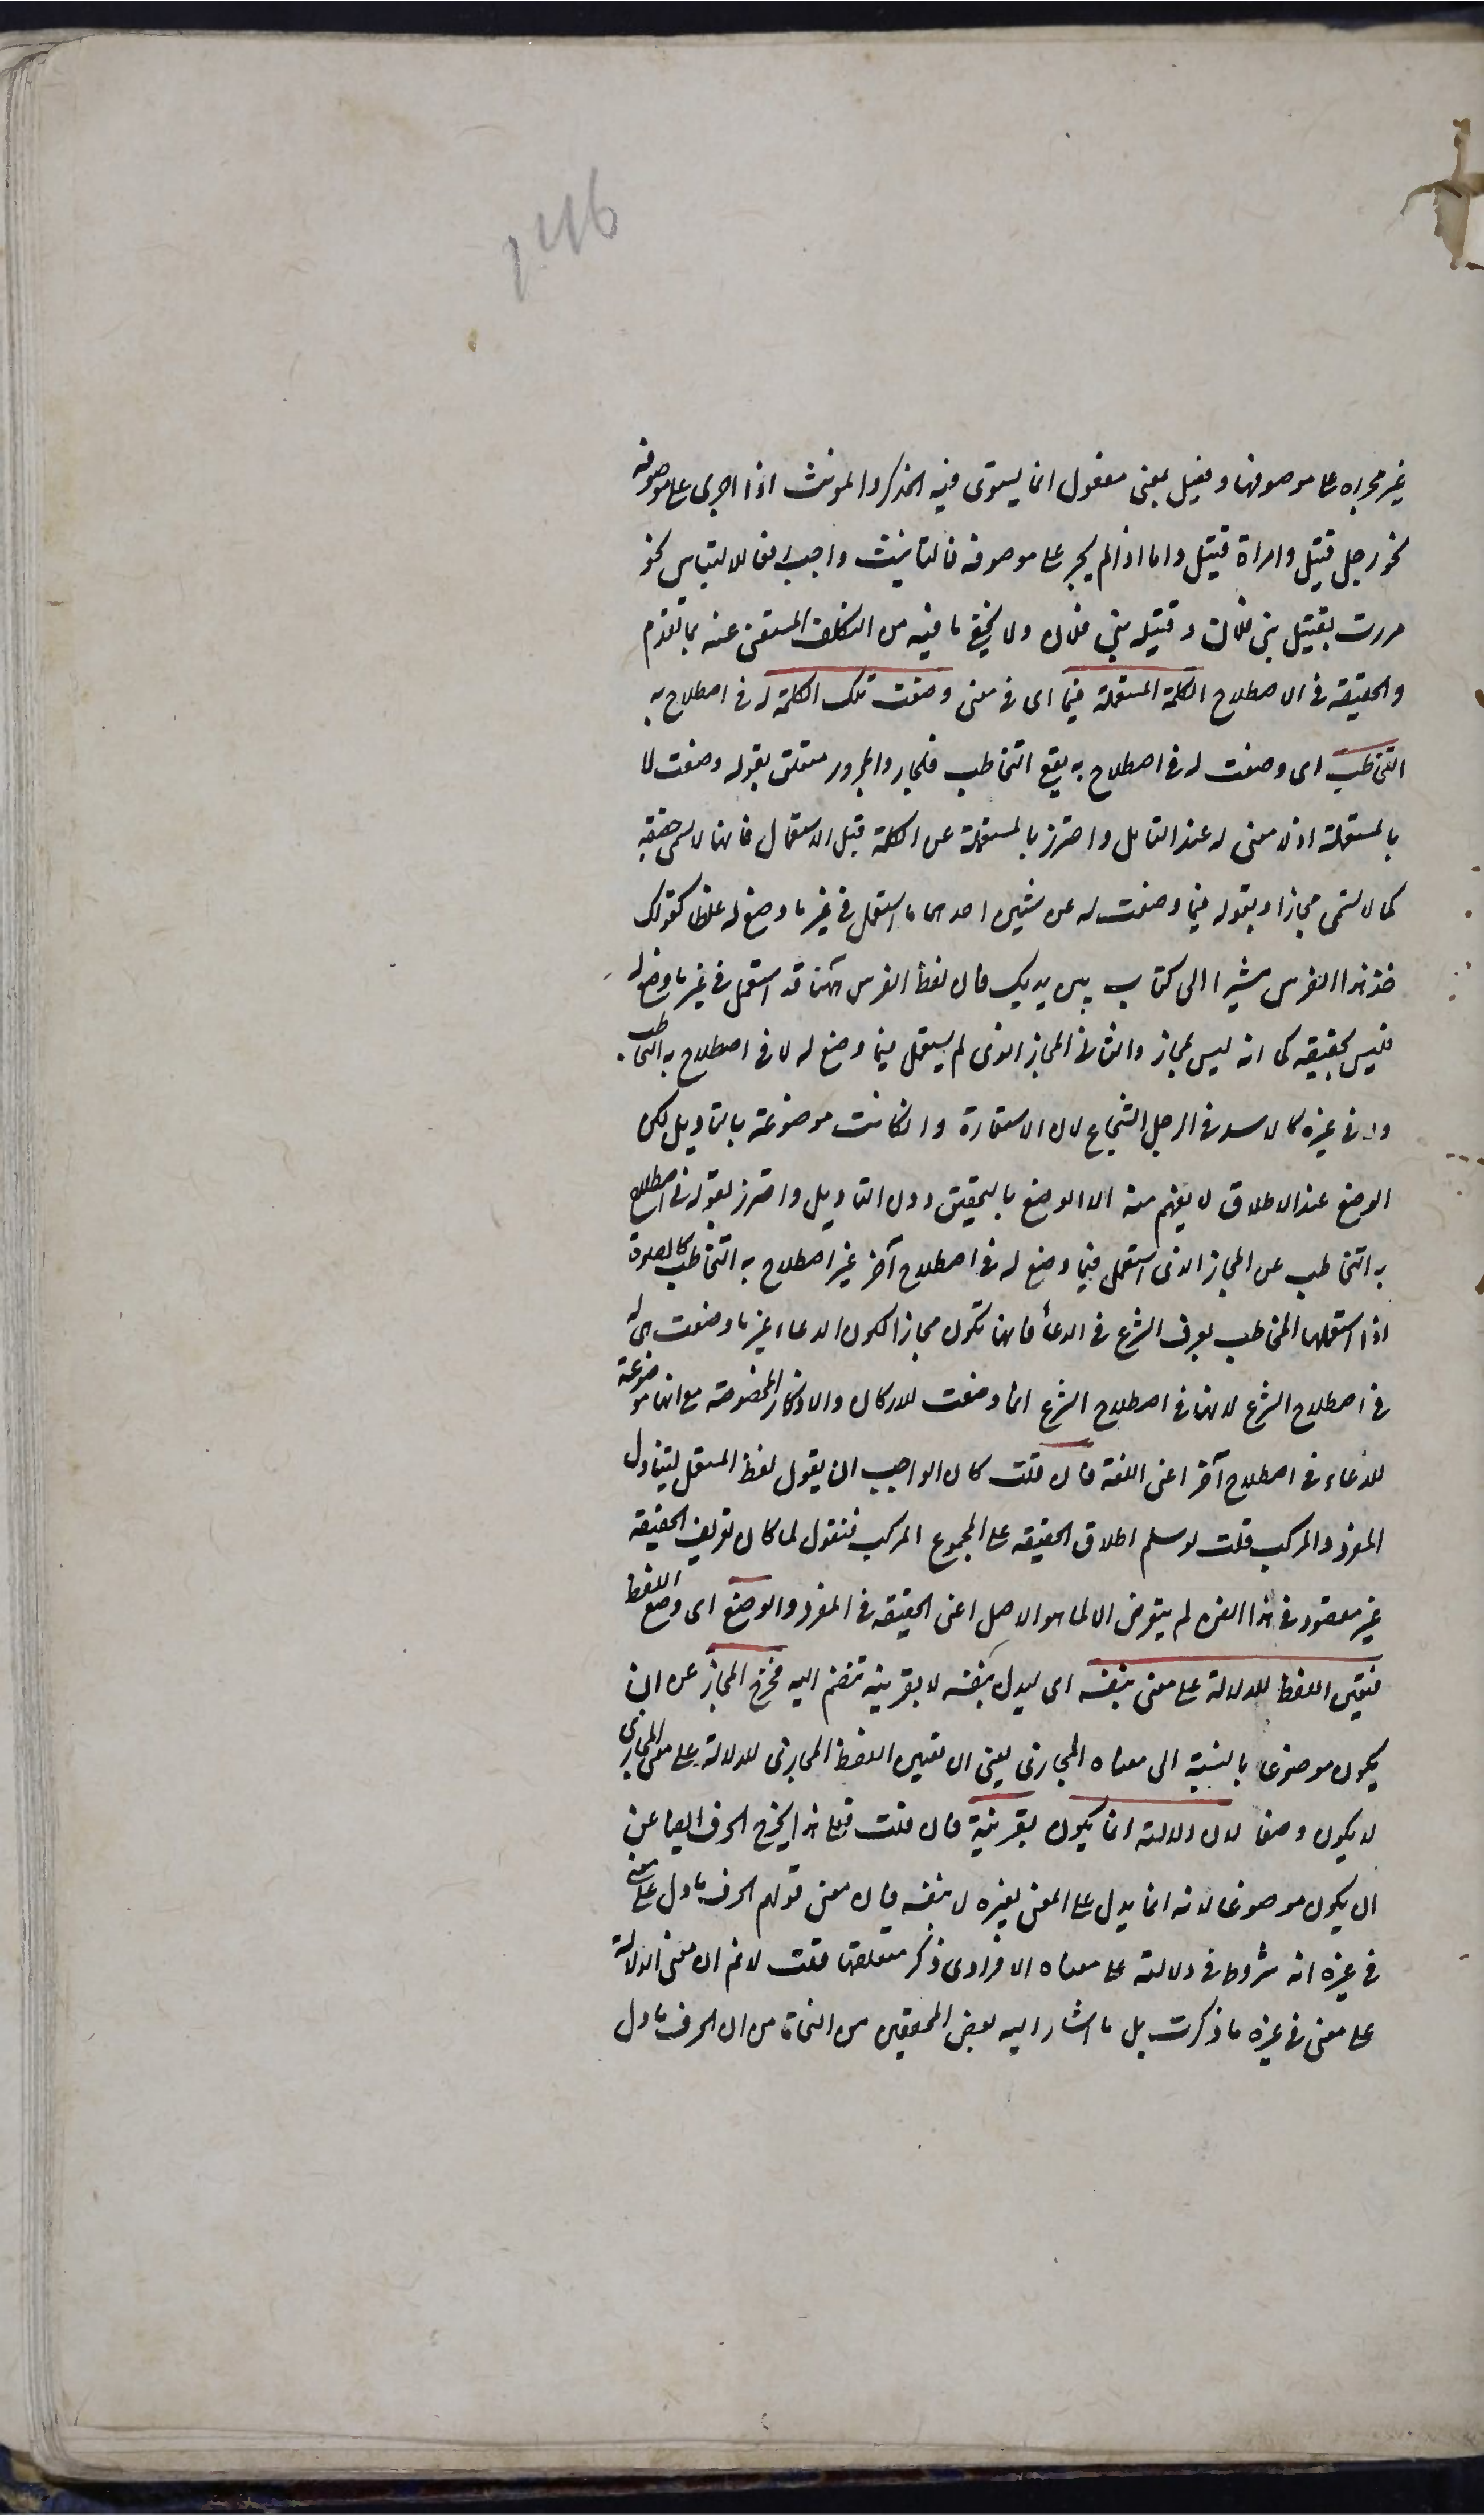 غير مجراه على موصوفها وفعيل بمعنى مفعول انما يستوى فيه المذكر والمونث اذا اجرى على موصوفه
نحو رجل قتيل وامراة قتيل واما اذا لم يجر على موصوفه فالتانيث واجب دفعا للالتباس نحو
مررت بقتيل بنى فلان وقتيله بنى فلان ولا يخفى ما فيه من التكلف المستغنى عنه بما تقدم
والحقيقه فى الاصطلاح الكلمة المستعملة فيما اى فى معنى وضعت تلك الكلمة له فى اصطلاح به
التخاطب اى وضعت له فى اصطلاح به يقع التخاطب فالجار والمجرور متعلق بقوله وضعت لا
بالمستعملة اذ لا معنى له عند التامل واحترز بالمستعملة عن الكلمة قبل الاستعمال فانها لا تسمى حقيقه
كما لا تسمى مجازا وبقوله فيما وضعت له عن شيئين احدهما ما استعمل فى غير ما وضع له غلطا كقولك
خذ هذا الفرس مشيرا الى كتاب بين يديك فان لفظ الفرس ههنا قد استعمل فى غير ما وضع له
فليس بحقيقه كما انه ليس بمجاز والثانى المجاز الذى لم يستعمل فيما وضع له لا فى اصطلاح به التخاطب
ولا فى غيره كالاسد فى الرجل الشجاع لان الاستعارة وان كانت موضوعة بالتاويل لكن
الوضع عند الاطلاق لا يفهم منه الا الوضع بالتحقيق دون التاويل واحترز بقوله فى اصطلاح
به التخاطب عن المجاز الذى استعمل فيما وضع له فى اصطلاح آخر غير اصطلاح به التخاطب كالصلوة
اذا استعملها المخاطب بعرف الشرع فى الدعأ فانها تكون مجازا لكون الدعاء غير ما وضعت هى له
فى اصطلاح الشرع لانها فى اصطلاح الشرع انما وضعت للاركان والاذكار المخصوصة مع انها موضوعة
للدعاء فى اصطلاح آخر اعنى اللغة فان قلت كان الواجب ان يقول لفظ المستعمل ليتناول
المفرد والمركب قلت لو سلم اطلاق الحقيقه على المجموع المركب فنقول لما كان تعريف الحقيقه
غير مقصود فى هذا الفن لم يتعرض الا لما هو الاصل اعنى الحقيقه فى المفرد والوضع اى وضع اللفظ
فتعين اللفظ للدلالة على معنى بنفسه اى ليدل بنفسه لا بقرينه تنضم اليه فخرج المجاز عن ان
يكون موضوعا بالنسبة الى معناه المجازى يعنى ان تعيين اللفظ المجازى للدلالة على معنى المجازى
لا يكون وضعا لان دلالته انما يكون بقرينة فان قلت فعلى هذا يخرج الحرف ايضا عن
ان يكون موضوعا لانه انما يدل على المعنى بغيره لا بنفسه فان معنى قولهم الحرف ما دل على معنى
فى غيره انه مشروط فى دلالته على معناه الافرادى ذكر متعلقها قلت لا نم ان معنى الدلالة
على معنى فى غيره ما ذكرت بل ما اشار اليه بعض المحققين من النحاة من ان الحرف ما دل